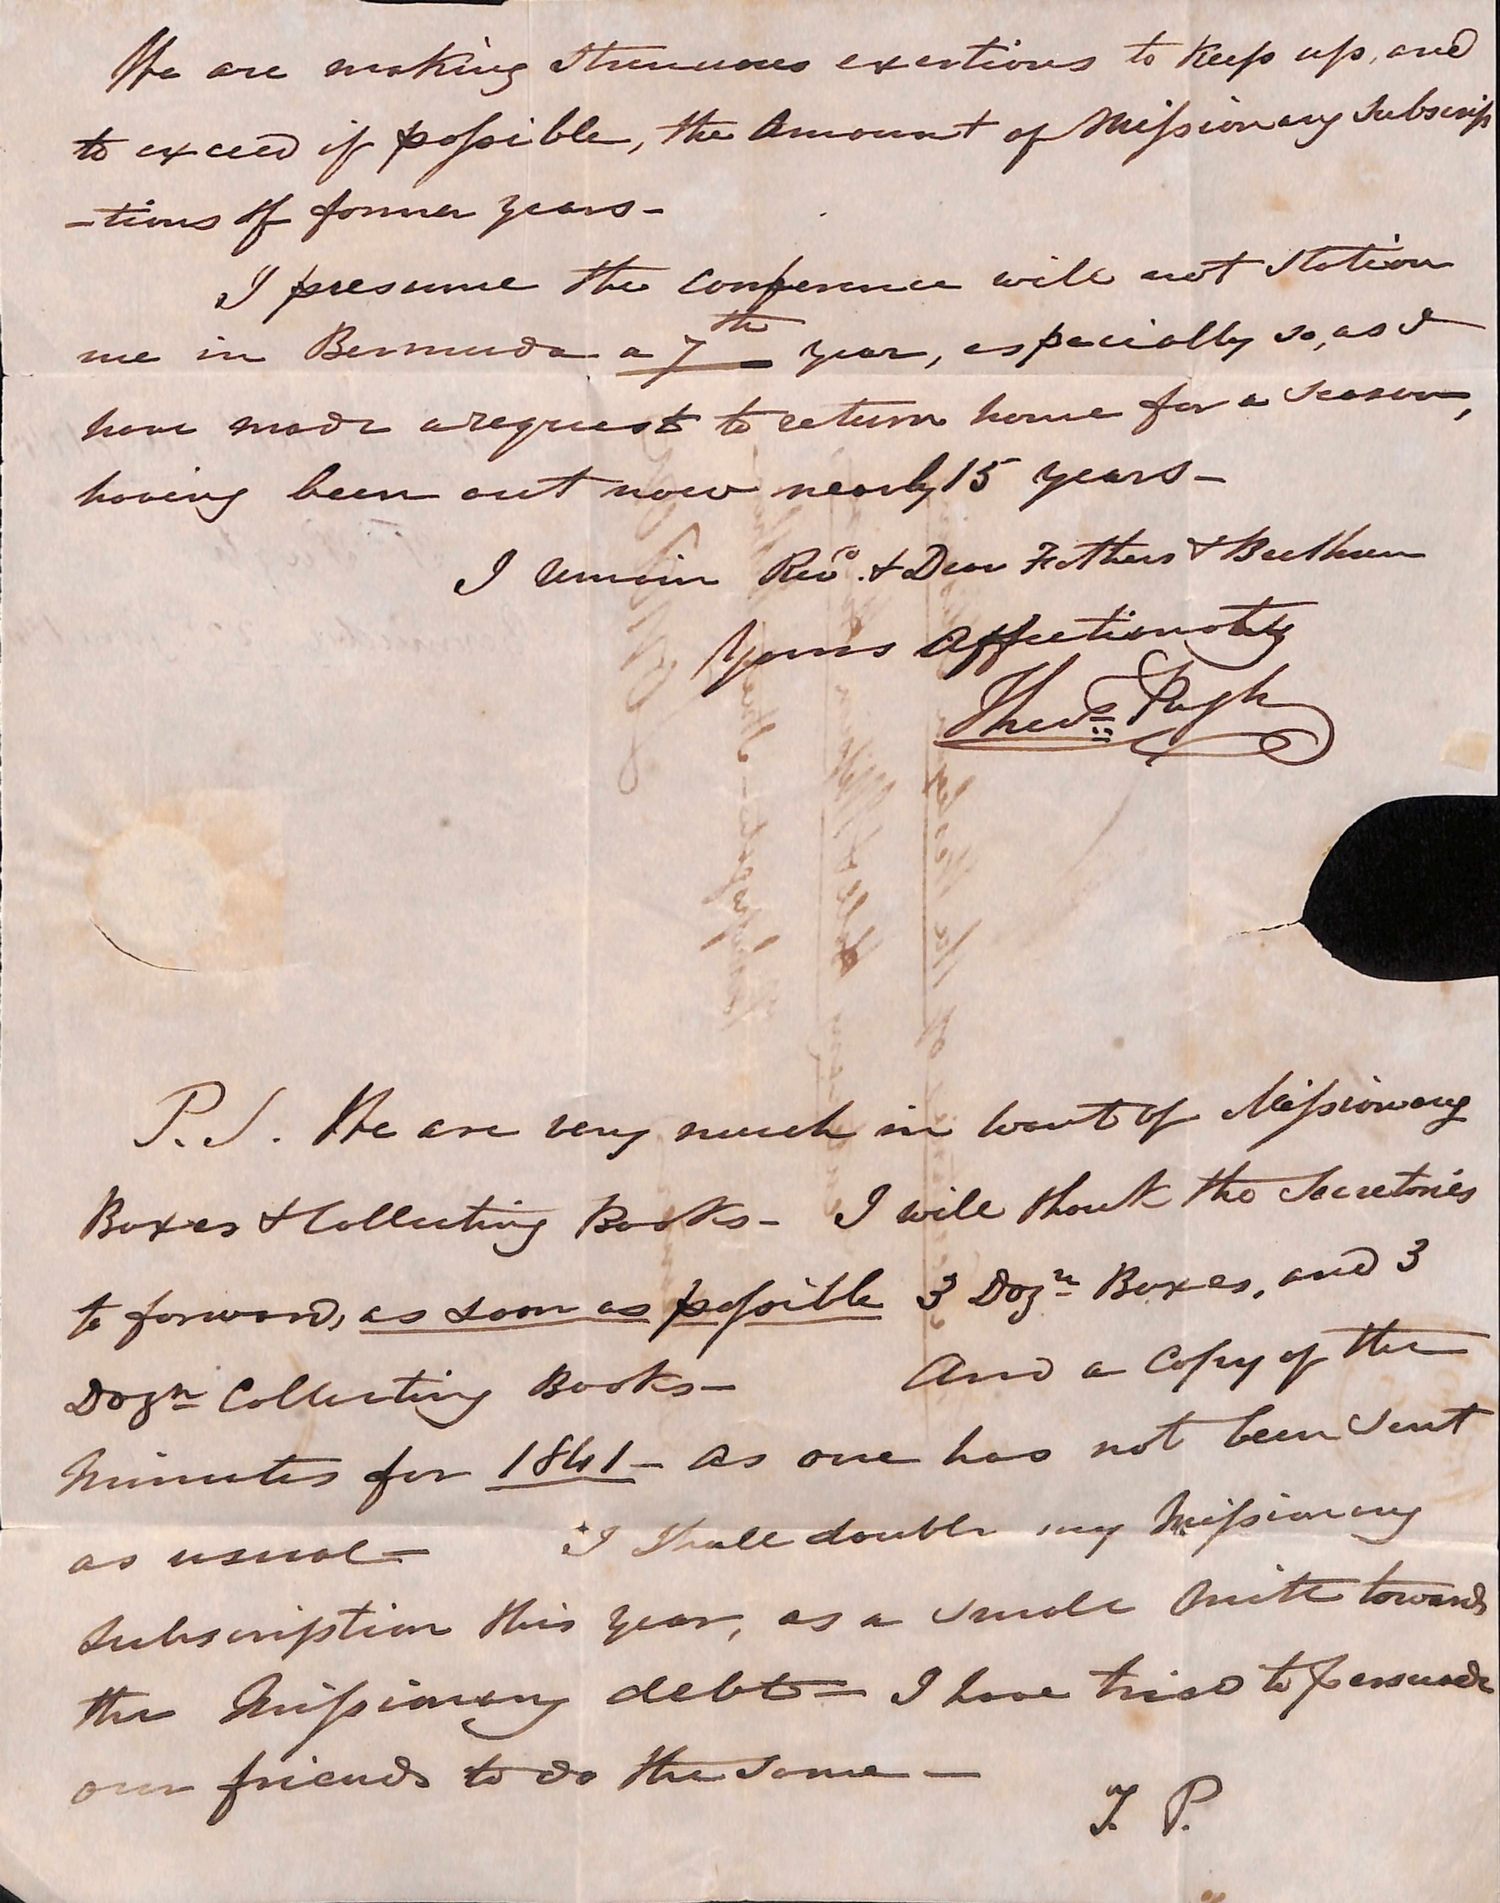 We are making strenuous exertions to keep up, and
to exceed if possible, the Amount of Missionary Subscrip
-tions of former years-
I presume the Conference will not station
me in Bermuda a 7th year, especially so, as I
have made a request to return home for a season,
having been out now nearly 15 years-
I remain Revd. & Dear Fathers & Brethren
Yours Affectionately
Theos. Pugh
P.S. We are very much in want of Missionary
Boxes & Collecting Books- I will thank the Secretories
to forward, as soon as possible 3 Dozn Boxes, and 3
Dozn Collecting Books- And a Copy of the
Minutes for 1841- as one has not been sent
as usual- I shall double my Missionary
Subscription this year, as a small Mite towards
the Missionary debt- I have tried to persuade
our friends to do the same-
T. P.